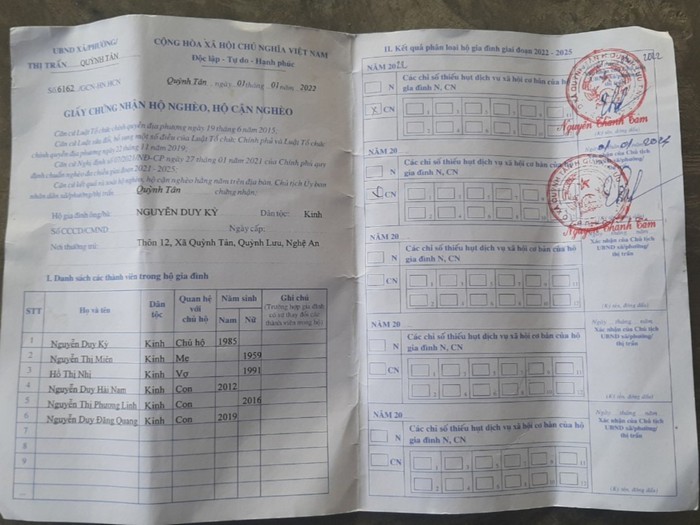 UBND XÃ/PHƯỜNG/
THỊ TRẤN QUỲNH TÂN
Số 6162 /GCN-HN.HCN
CỘNG HÒA XÃ HỘI CHỦ NGHĨA VIỆT NAM
Độc lập - Tự do - Hạnh phúc
Quỳnh Tân , ngày 01 tháng 01 năm 2022
GIẤY CHỨNG NHẬN HỘ NGHÈO, HỘ CẬN NGHÈO
Căn cứ Luật Tổ chức chính quyền địa phương ngày 19 tháng 6 năm 2015;
Căn cứ Luật sửa đổi, bổ sung một số điều của Luật Tổ chức Chính phủ và Luật Tổ chức
chính quyền địa phương ngày 22 tháng 11 năm 2019;
Căn cứ Nghị định số 07/2021/NĐ-CP ngày 27 tháng 01 năm 2021 của Chính phủ quy
định chuẩn nghèo đa chiều giai đoạn 2021 - 2025;
Căn cứ kết quả rà soát hộ nghèo, hộ cận nghèo hằng năm trên địa bàn, Chủ tịch Ủy ban
nhân dân xã/phường/thị trấn Quỳnh Tân chứng nhận:
Hộ gia đình ông/bà: NGUYỄN DUY KỶ Dân tộc: Kinh
Số CCCD/CMND Ngày cấp:
Nơi thường trú: Thôn 12, Xã Quỳnh Tân, Quỳnh Lưu, Nghệ An
I. Danh sách các thành viên trong hộ gia đình
STT Họ và tên Dân tộc Quan hệ với chủ hộ Năm sinh Nam Nữ Ghi chú
1 Nguyễn Duy Kỷ Kinh Chủ hộ 1985
2 Nguyễn Thị Miên Kinh Mẹ 1959
3 Hồ Thị Nhị Kinh Vợ 1991
4 Nguyễn Duy Hải Nam Kinh Con 2012
5 Nguyễn Thị Phương Linh Kinh Con 2016
6 Nguyễn Duy Đăng Quang Kinh Con 2019
7
8
...
II. Kết quả phân loại hộ gia đình giai đoạn 2022 - 2025
NĂM 2022
N
CN
Các chỉ số thiếu hụt dịch vụ xã hội cơ bản của hộ
gia đình N, CN
Nguyễn Thanh Tâm
NĂM 20
N
CN
Các chỉ số thiếu hụt dịch vụ xã hội cơ bản của hộ
gia đình N, CN
Nguyễn Thanh Tâm
NĂM 20
N
CN
Các chỉ số thiếu hụt dịch vụ xã hội cơ bản của hộ
gia đình N, CN
Ngày tháng năm
Xác nhận của Chủ tịch
UBND xã/phường/
thị trấn
(Ký tên, đóng dấu)
NĂM 20
N
CN
Các chỉ số thiếu hụt dịch vụ xã hội cơ bản của hộ
gia đình N, CN
Ngày tháng năm
Xác nhận của Chủ tịch
UBND xã/phường/
thị trấn
(Ký tên, đóng dấu)
NĂM 20
N
CN
Các chỉ số thiếu hụt dịch vụ xã hội cơ bản của hộ
gia đình N, CN
Ngày tháng năm
Xác nhận của Chủ tịch
UBND xã/phường/
thị trấn
(Ký tên, đóng dấu)